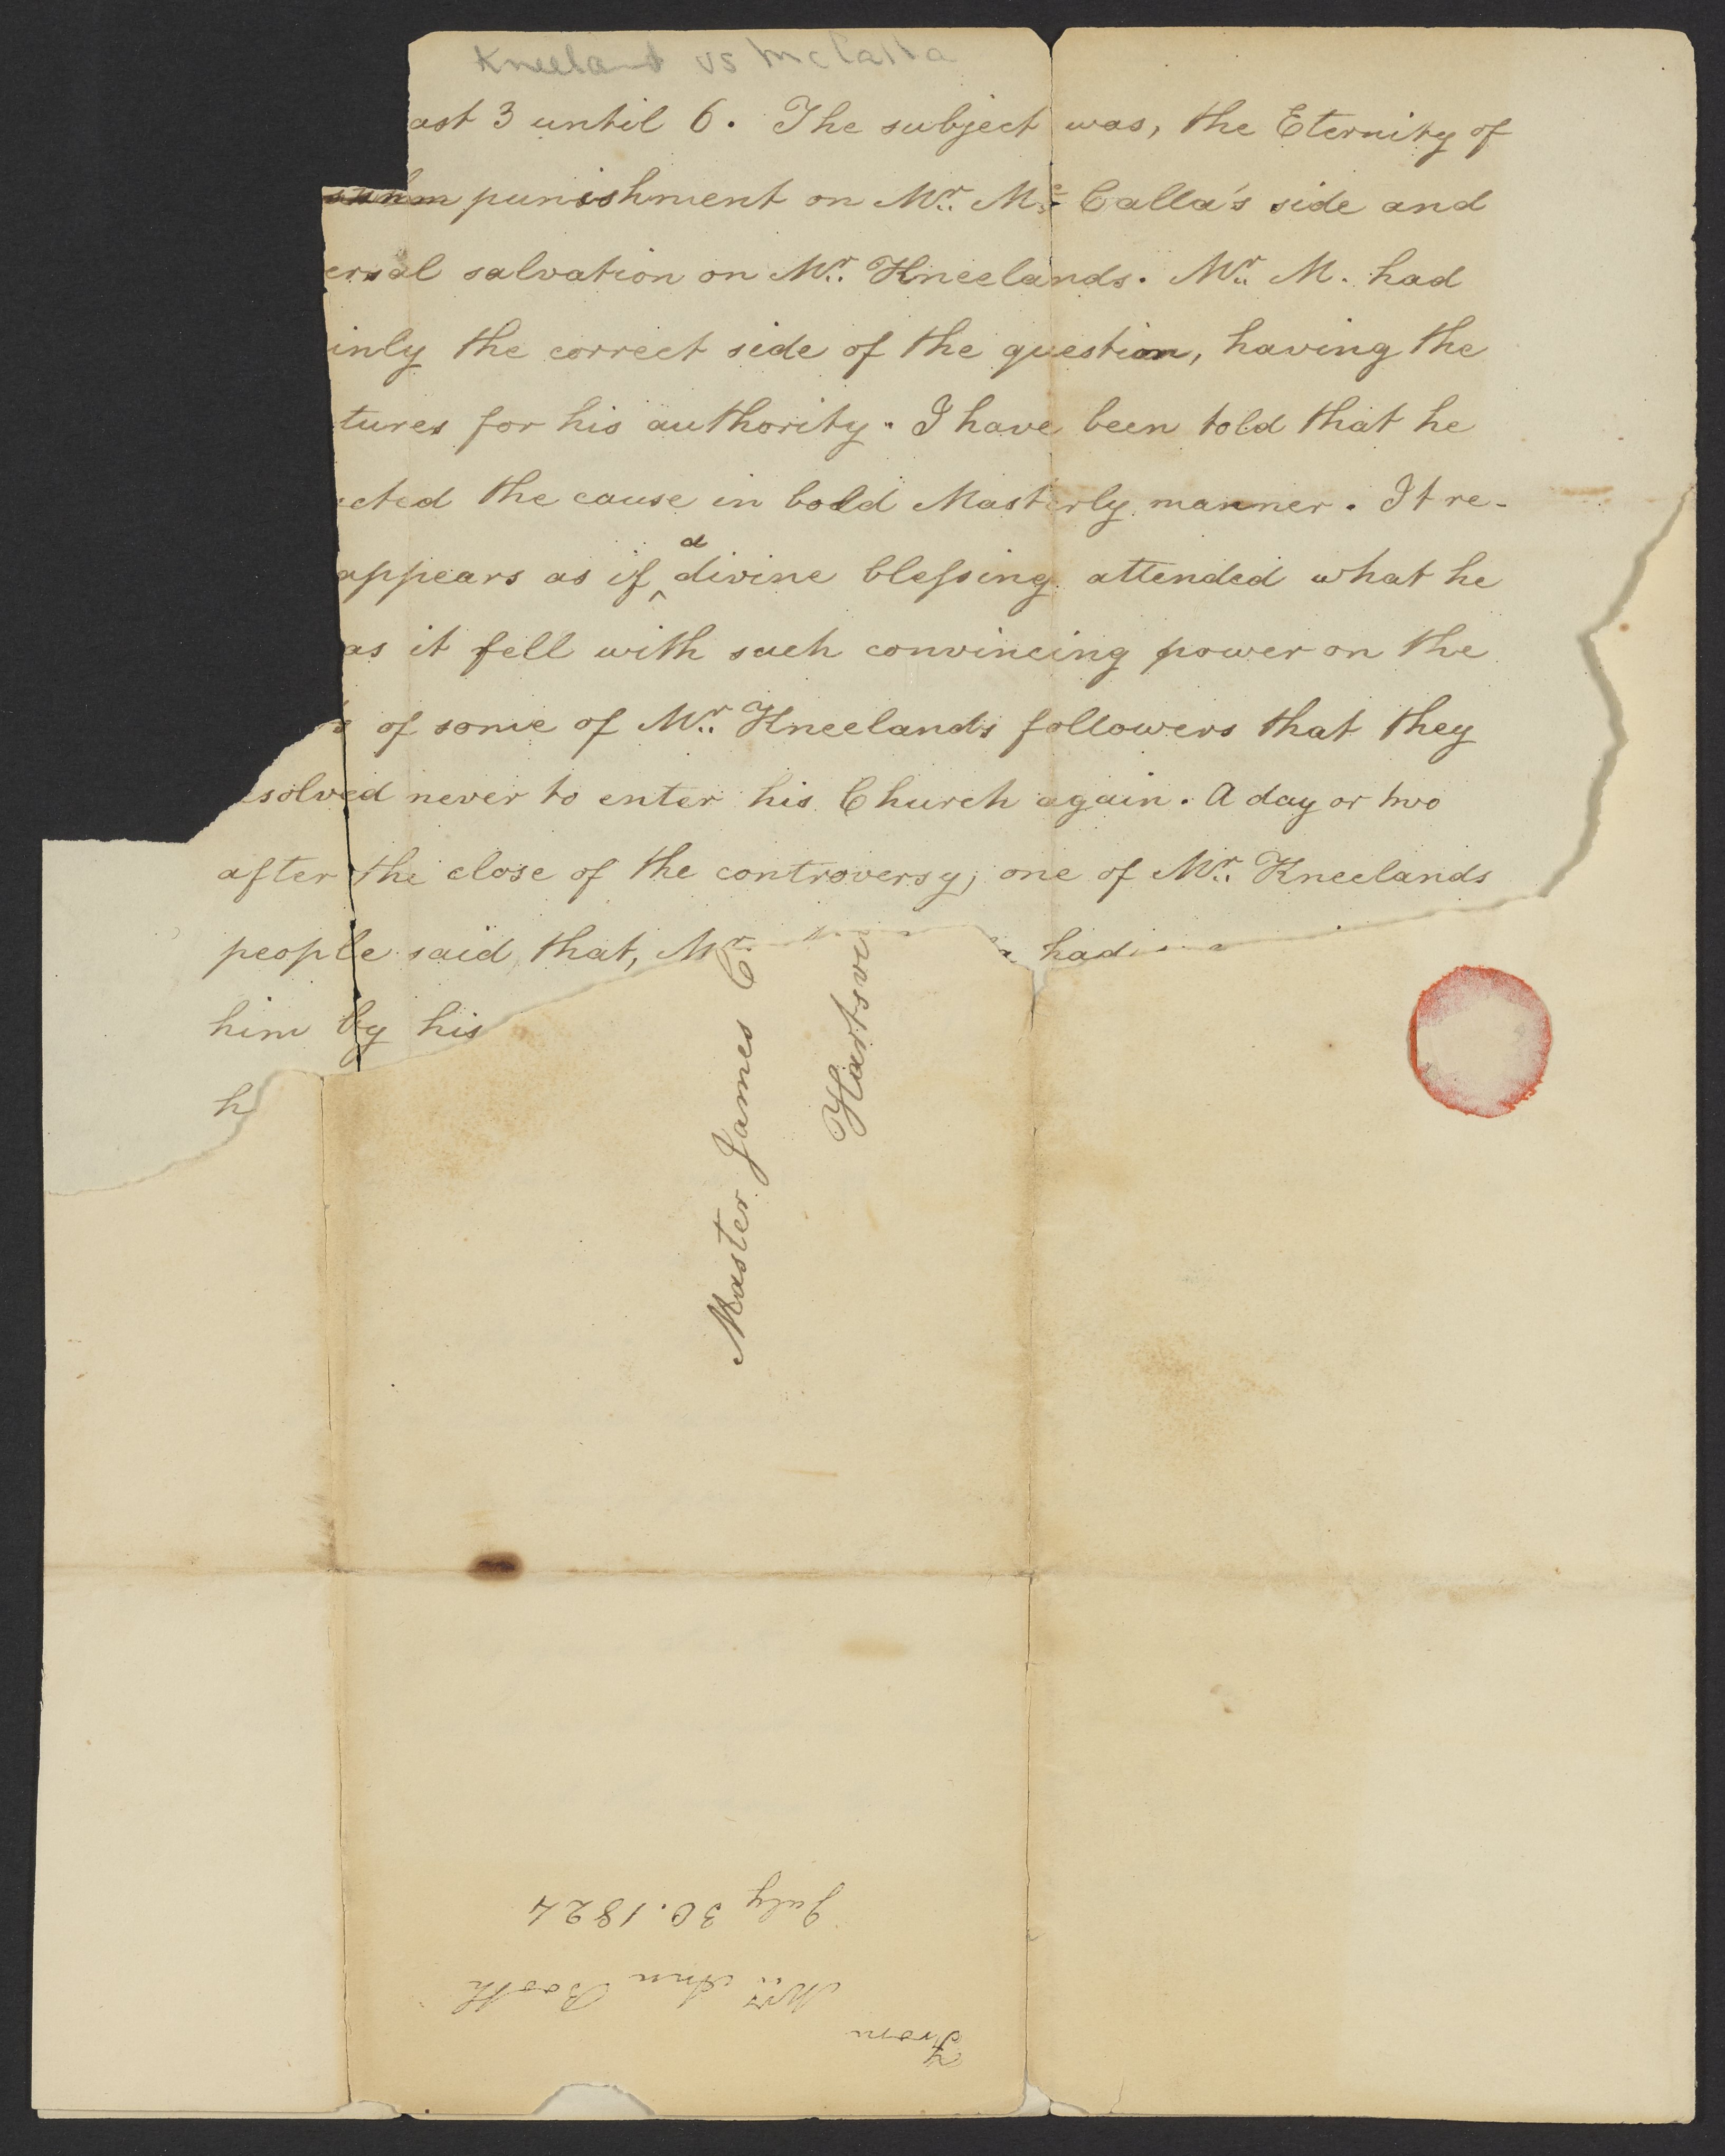 Kneeland vs McCalla
ast 3 until 6. The subject was, the Eternity of
punishment on Mr. Mc Calla's side and
ersal salvation on Mr. Kneelands. Mr. M. had
inly the correct side of the question, having the
tures for his authority. I have been told that he
cted the cause in bold Masterly manner. It re-
appears as if a divine blessing attended what he
as it fell with such convincing power on the
s of some of Mr. Kneelands followers that they
solved never to enter his Church again. A day or two
after the close of the controversy, one of Mr. Kneelands
people said, that, Mr. had
him by his
h
Master James C.
Hartsvi
From
Mrs. Ann Booth
July 30. 1824